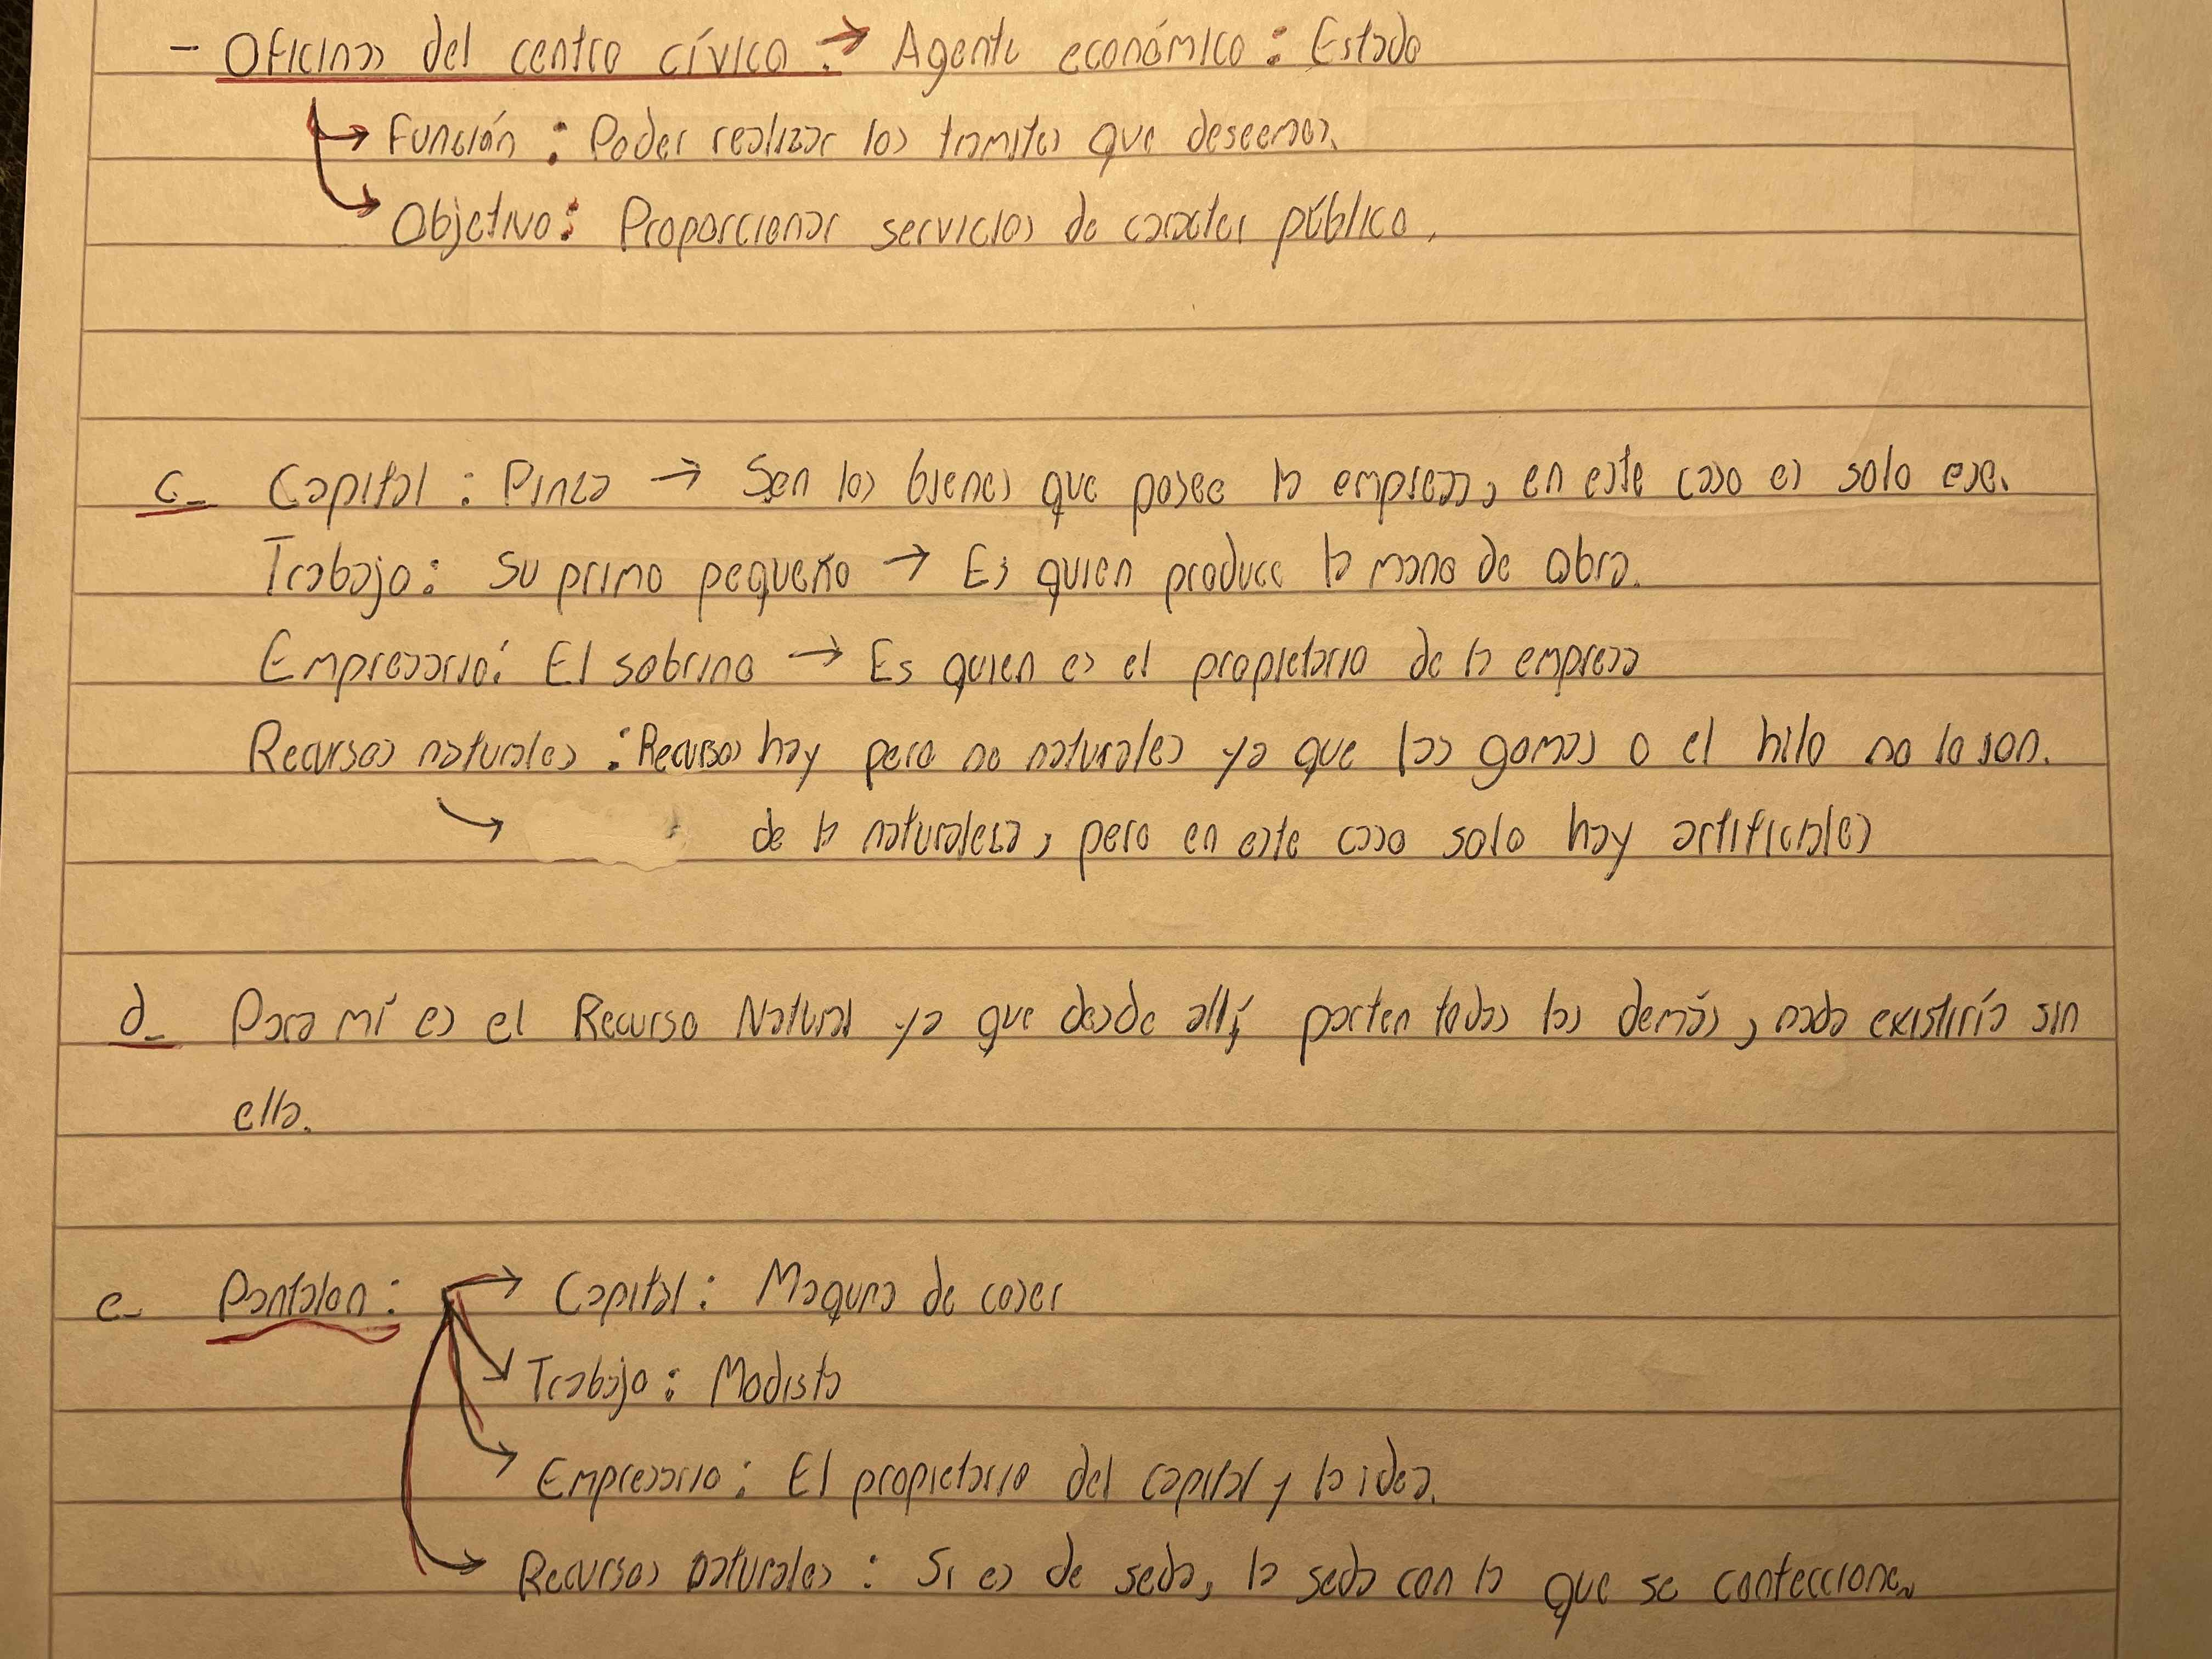 - Oficinas del centro cívico: → Agente económico: Estado
→ Función: Poder realizar los tramites que deseemos.
→ Objetivo: Proporcionar servicios de caracter público.
c- Capital: Pinza → Son los bienes que posee la empresa, en este caso es solo ese.
Trabajo: Su primo pequeño → Es quien produce la mano de obra.
Empresario: El sobrino → Es quien es el propietario de la empresa
Recursos naturales: Recursos hay pero no naturales ya que las gomas o el hilo no lo son.
→ de la naturaleza, pero en este caso solo hay artificiales
d- Para mí es el Recurso Natural ya que desde allí parten todos los demás, nada existiría sin
ella.
e- Pantalon: → Capital: Maquina de coser
→ Trabajo: Modista
→ Empresario: El propietario del capital y la idea.
→ Recursos naturales: Si es de seda, la seda con la que se confeccione.